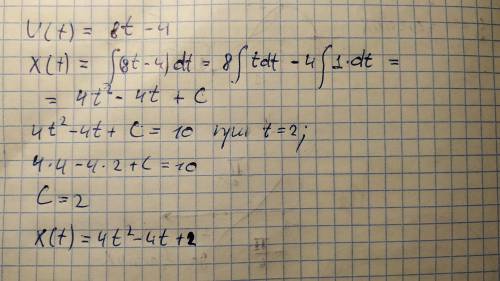 V(t) = 8t - 4
X(t) = ∫(8t - 4)dt = 8∫tdt - 4∫1·dt =
= 4t² - 4t + C
4t² - 4t + C = 10 при t = 2;
4·4 - 4·2 + C = 10
C = 2
X(t) = 4t² - 4t + 2